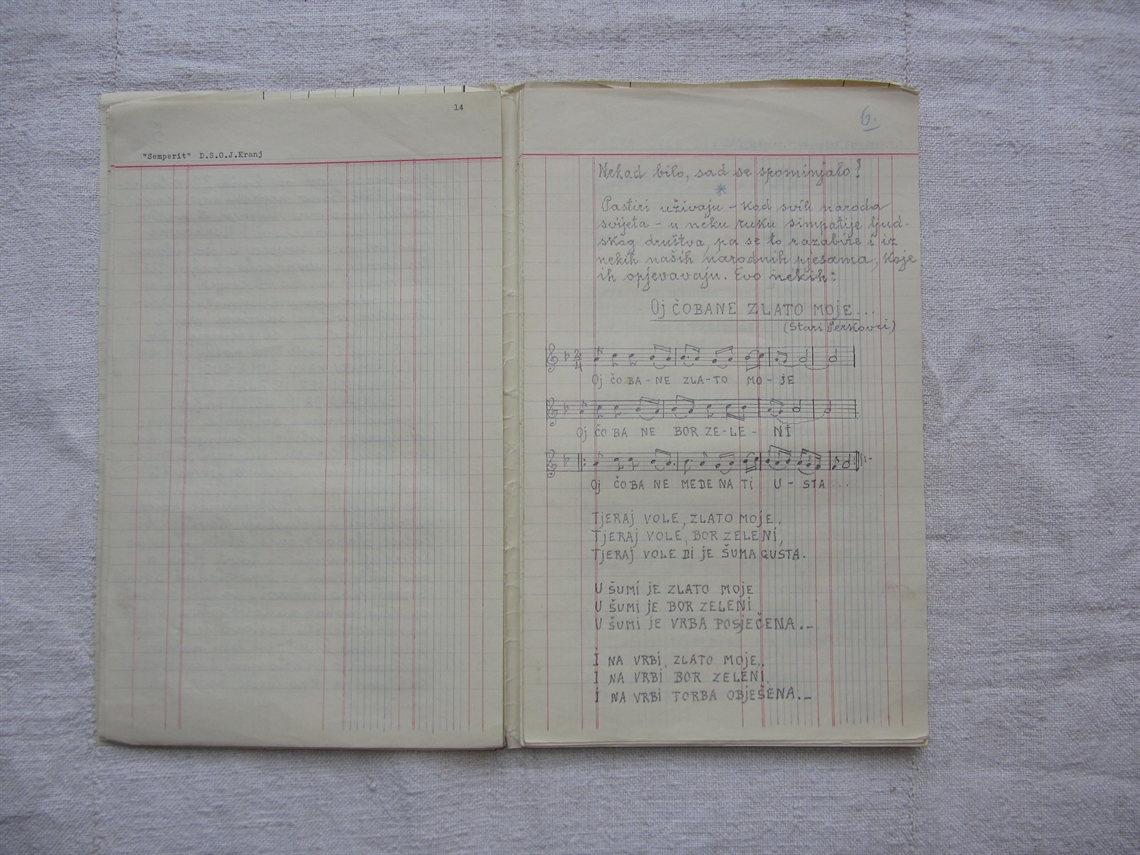 14
"Semperit" D.S.O.J.Kranj
6.
Nekad bilo, sad se spominjalo!
*
Pastiri uživaju - kod svih naroda
svijeta - u neku ruku simpatije ljud-
skog društva, pa se to razabire i iz
nekih naših narodnih pjesama, koje
ih opjevavaju. Evo nekih:
Oj ČOBANE ZLATO MOJE...
(Stari Perkovci)
Oj ČO BA - NE ZLA - TO MO - JE
Oj ČO BA NE BOR ZE - LE - NI
Oj ČO BA NE MEDE NA TI U - STA...
TJERAJ VOLE, ZLATO MOJE,
TJERAJ VOLE, BOR ZELENI,
TJERAJ VOLE DI JE ŠUMA GUSTA.
U ŠUMI JE ZLATO MOJE
U ŠUMI JE BOR ZELENI
U ŠUMI JE VRBA POSJEČENA.-
I NA VRBI, ZLATO MOJE,
I NA VRBI BOR ZELENI,
I NA VRBI TORBA OBJEŠENA.-